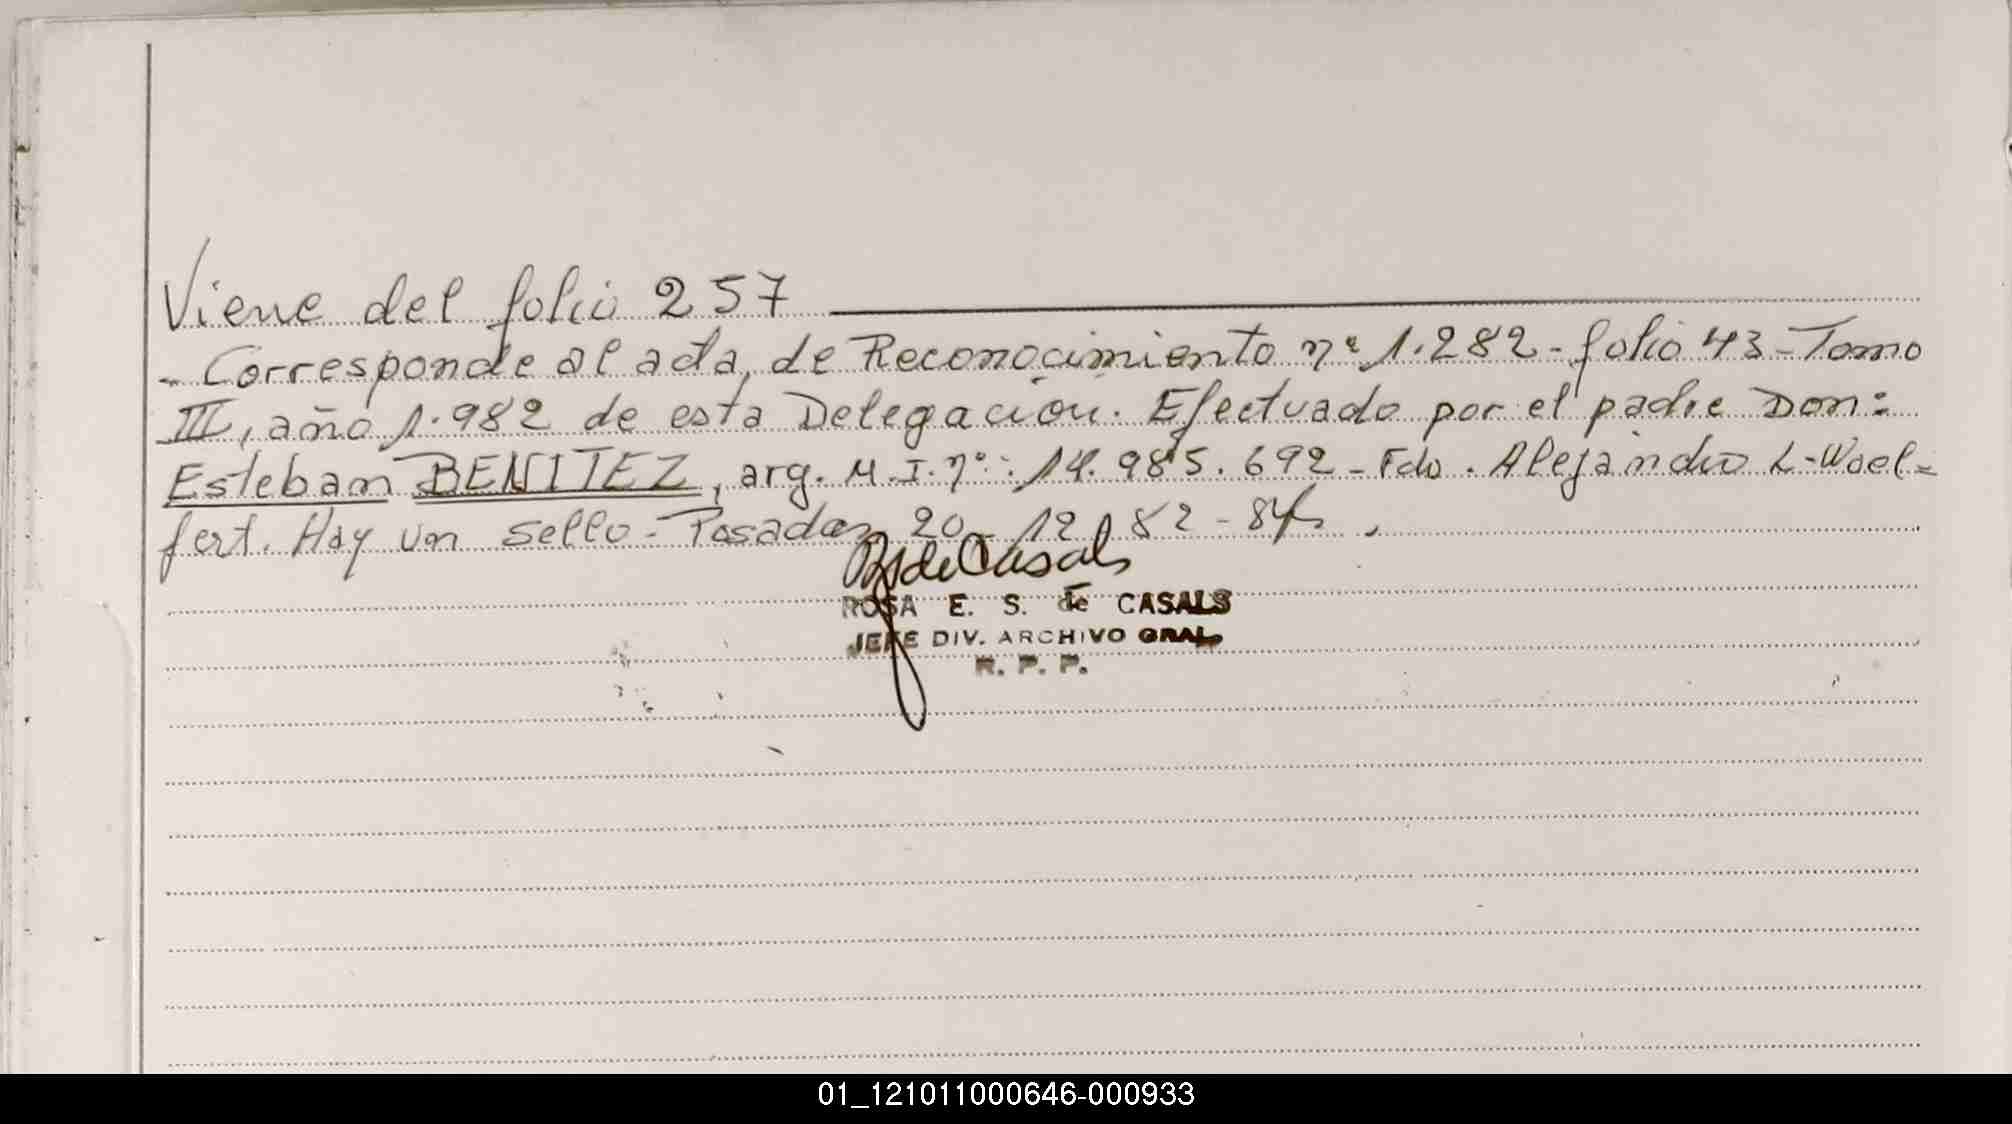 Viene del folio 257
- Corresponde al acta, de Reconocimiento nº 1.282 - folio 43 - Tomo
III, año 1.982 de esta Delegación. Efectuado por el padre Don:
Esteban BENITEZ, arg. M.I. nº: 14.985.692 - Fdo. Alejandro L. Woel=
fert. Hay un sello - Posadas 20 - 12 - 82 -
RS de Casals
ROSA E. S. de CASALS
JEFE DIV. ARCHIVO GRAL.
R. P. P.
01_121011000646-000933